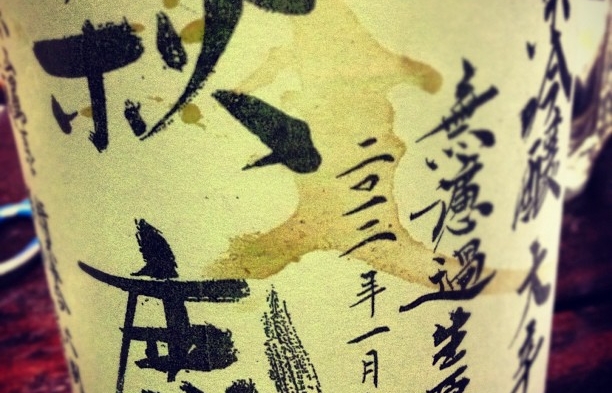 米吟醸 大辛
無濾過生原
二〇一二年一月
秋鹿